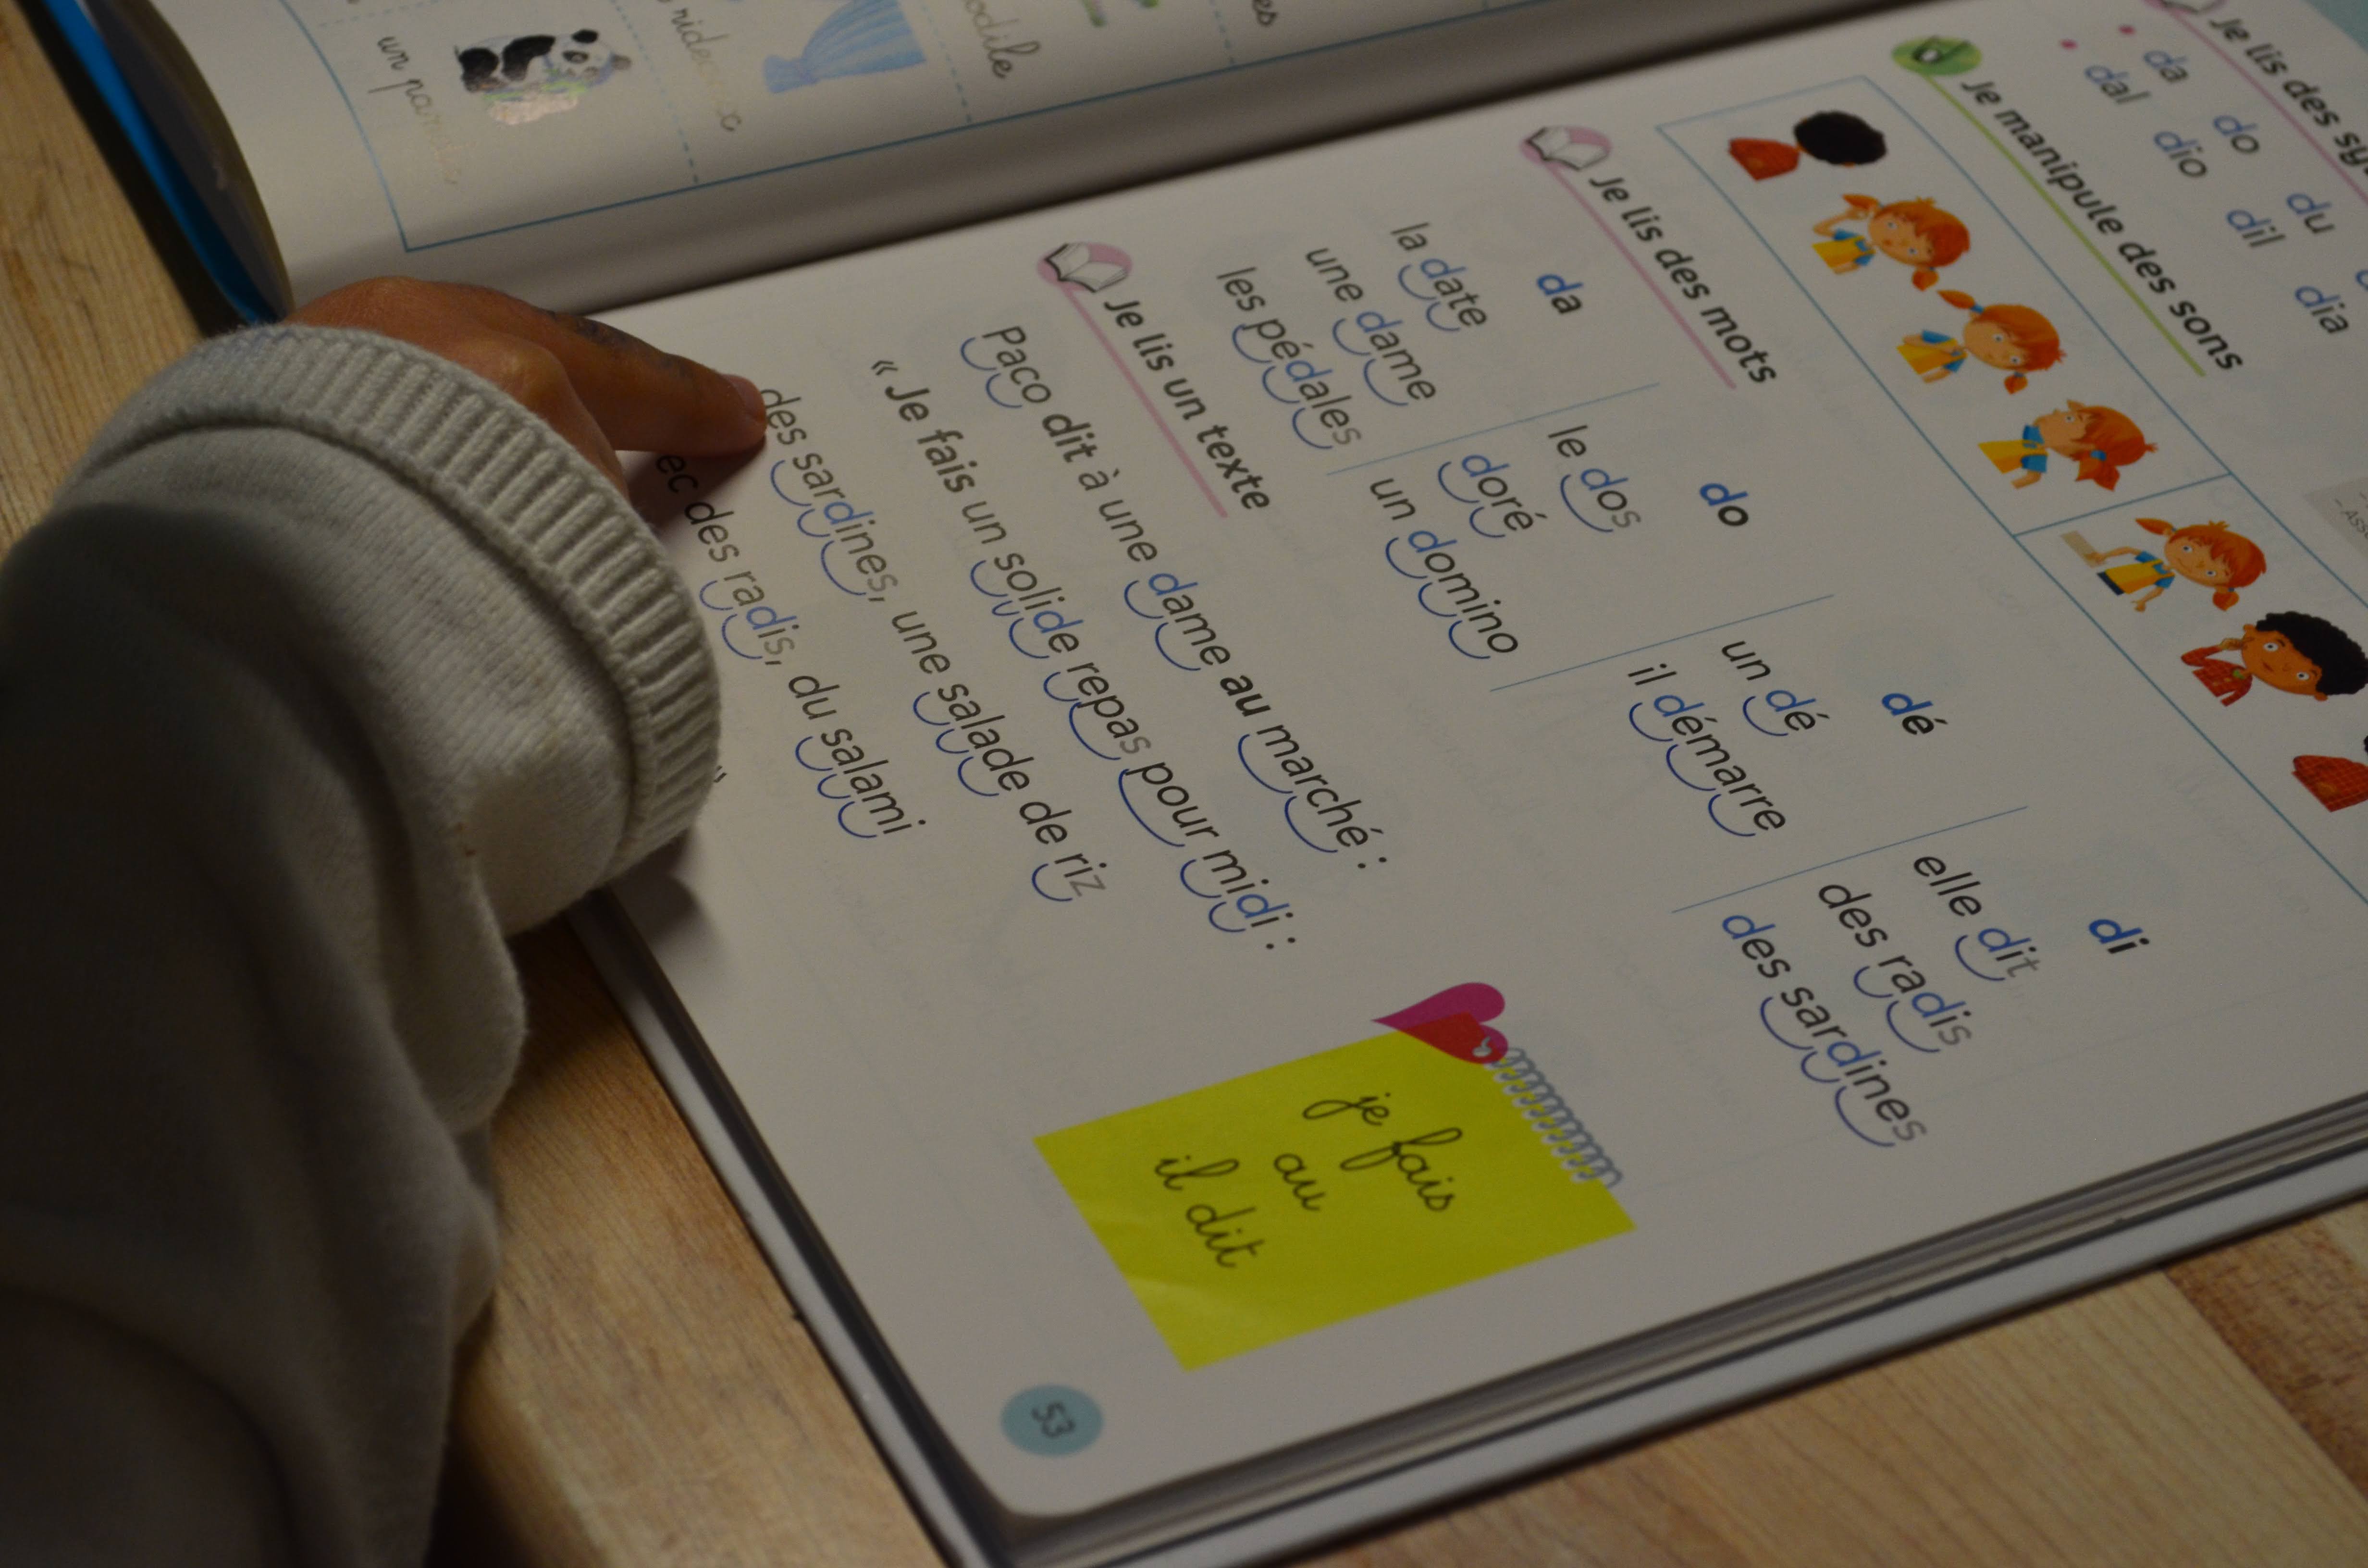 un
rideaux
odile
es
Je lis des
da do du
dal dio dil dia
Je manipule des sons
Je lis des mots
da do dé di
la date le dos un dé elle dit
une dame doré il démarre des radis
les pédales un domino des sardines
Je lis un texte
Paco dit à une dame au marché :
« Je fais un solide repas pour midi :
des sardines, une salade de riz
des radis, du salami
»
je fais
au
il dit
53